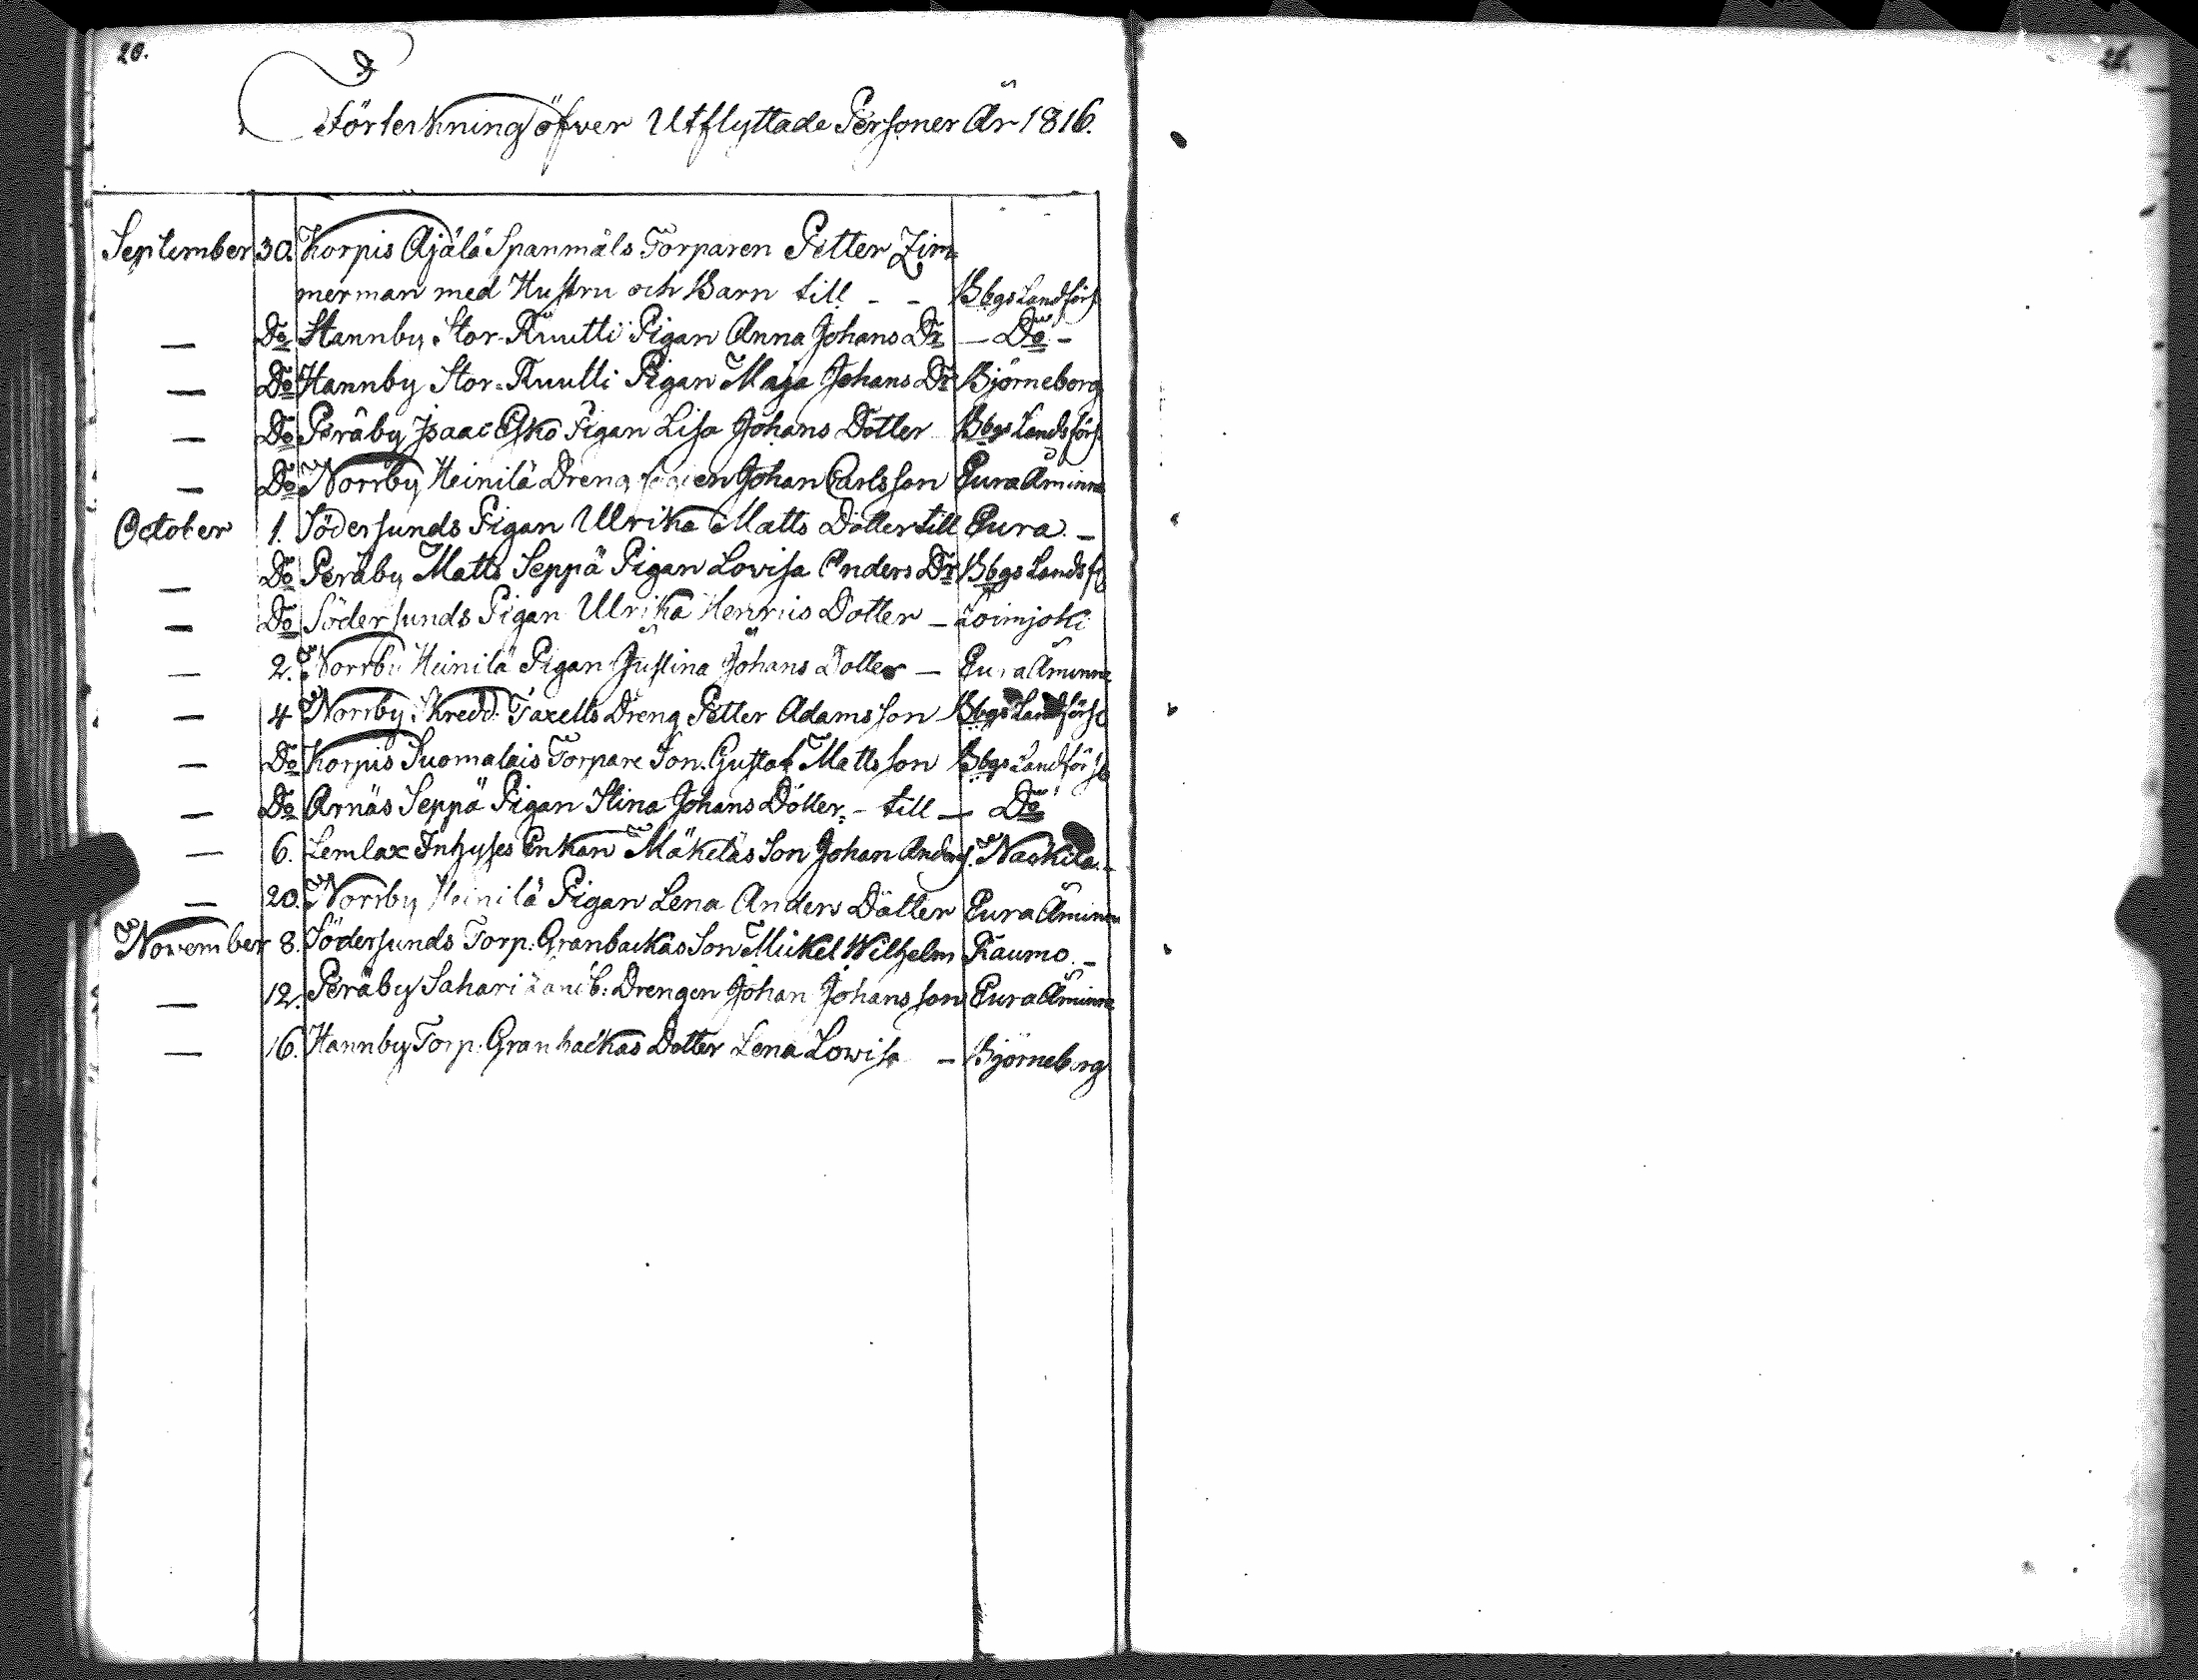 20.
21.
Förtekning öfver Utflyttade Personer År 1816.
September 30. Korpis Äjälä Spanmåls Torparen Petter Zim-
merman med Hustru och Barn till - - Bbgs Landförs
— Do Hannby Stor-Ruutti Pigan Anna Johans Dr — Do -
— Do Hannby Stor-Ruutti Pigan Maja Johans Dr Björneborg
— Do Peräby Isaac Esko Pigan Lisa Johans Dotter Bbgs Landsförs
— Do Norrby Heinilä Dreng Johan Carlsson Eura Åminne
October 1. Södersunds Pigan Ullrika Matts Dotter till Eura. -
— Do Peräby Matts Seppä Pigan Lovisa Anders Dr Bbgs Landsf
— Do Södersunds Pigan Ulrika Henrics Dotter — Loimjoki
— 2. Norrby Heinilä Pigan Justina Johans Dotter — Eura Åminne
— 4 Norrby Skredd. Taxells Dreng Petter Adamsson Bbgs Landförs
— Do Korpis Suomalais Torpare Son. Gustaf Mattsson Bbgs Landförs
— Do Arnäs Seppä Pigan Stina Johans Dotter. - till — Do
— 6. Lemlax Inhyses Enkan Mäkeläs Son Johan Anders. Nackila. -
— 20. Norrby Heinilä Pigan Lena Anders Dotter Eura Åminne
November 8. Södersunds Torp. Granbackas Son Mickel Wilhelm Raumo. -
— 12. Peräby Sahari Landb: Drengen Johan Johansson Eura Åminne
— 16. Hannby Torp. Granbackas Dotter Lena Lovisa — Björneborg